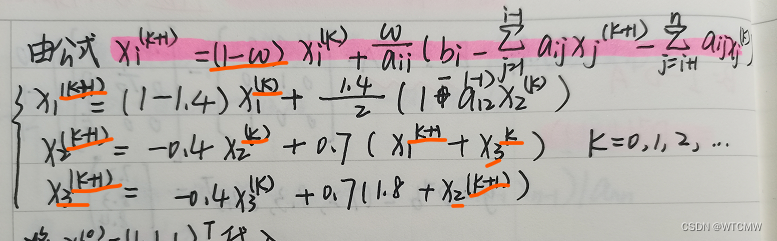 由公式 xᵢ⁽ᴷ⁺¹⁾ = (1-ω) xᵢ⁽ᴷ⁾ + ω/aᵢᵢ (bᵢ - Σ_{j=1}^{i-1} aᵢⱼxⱼ⁽ᴷ⁺¹⁾ - Σ_{j=i+1}^{n} aᵢⱼxⱼ⁽ᴷ⁾
x₁⁽ᴷ⁺¹⁾ = (1-1.4) x₁⁽ᴷ⁾ + 1.4/2 (1 a₁₂x₂⁽ᴷ⁾)
x₂⁽ᴷ⁺¹⁾ = -0.4 x₂⁽ᴷ⁾ + 0.7 ( x₁ᴷ⁺¹ + x₃ᴷ ) K=0,1,2,...
x₃⁽ᴷ⁺¹⁾ = -0.4x₃⁽ᴷ⁾ + 0.7(1.8 + x₂⁽ᴷ⁺¹⁾)
CSDN @WTCMW